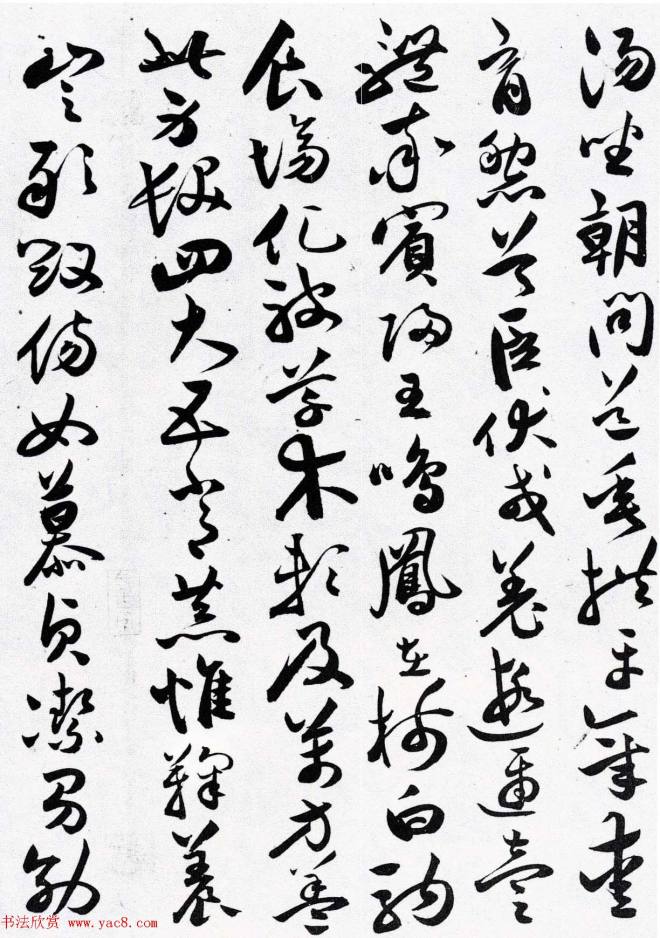 湯坐朝問道垂拱平章愛
育黎首臣伏戎羌遐邇壹
體率賓歸王鳴鳳在樹白駒
食場化被草木賴及萬方蓋
此身髮四大五常恭惟鞠養
豈敢毀傷女慕貞潔男效
书法欣赏 www.yac8.com